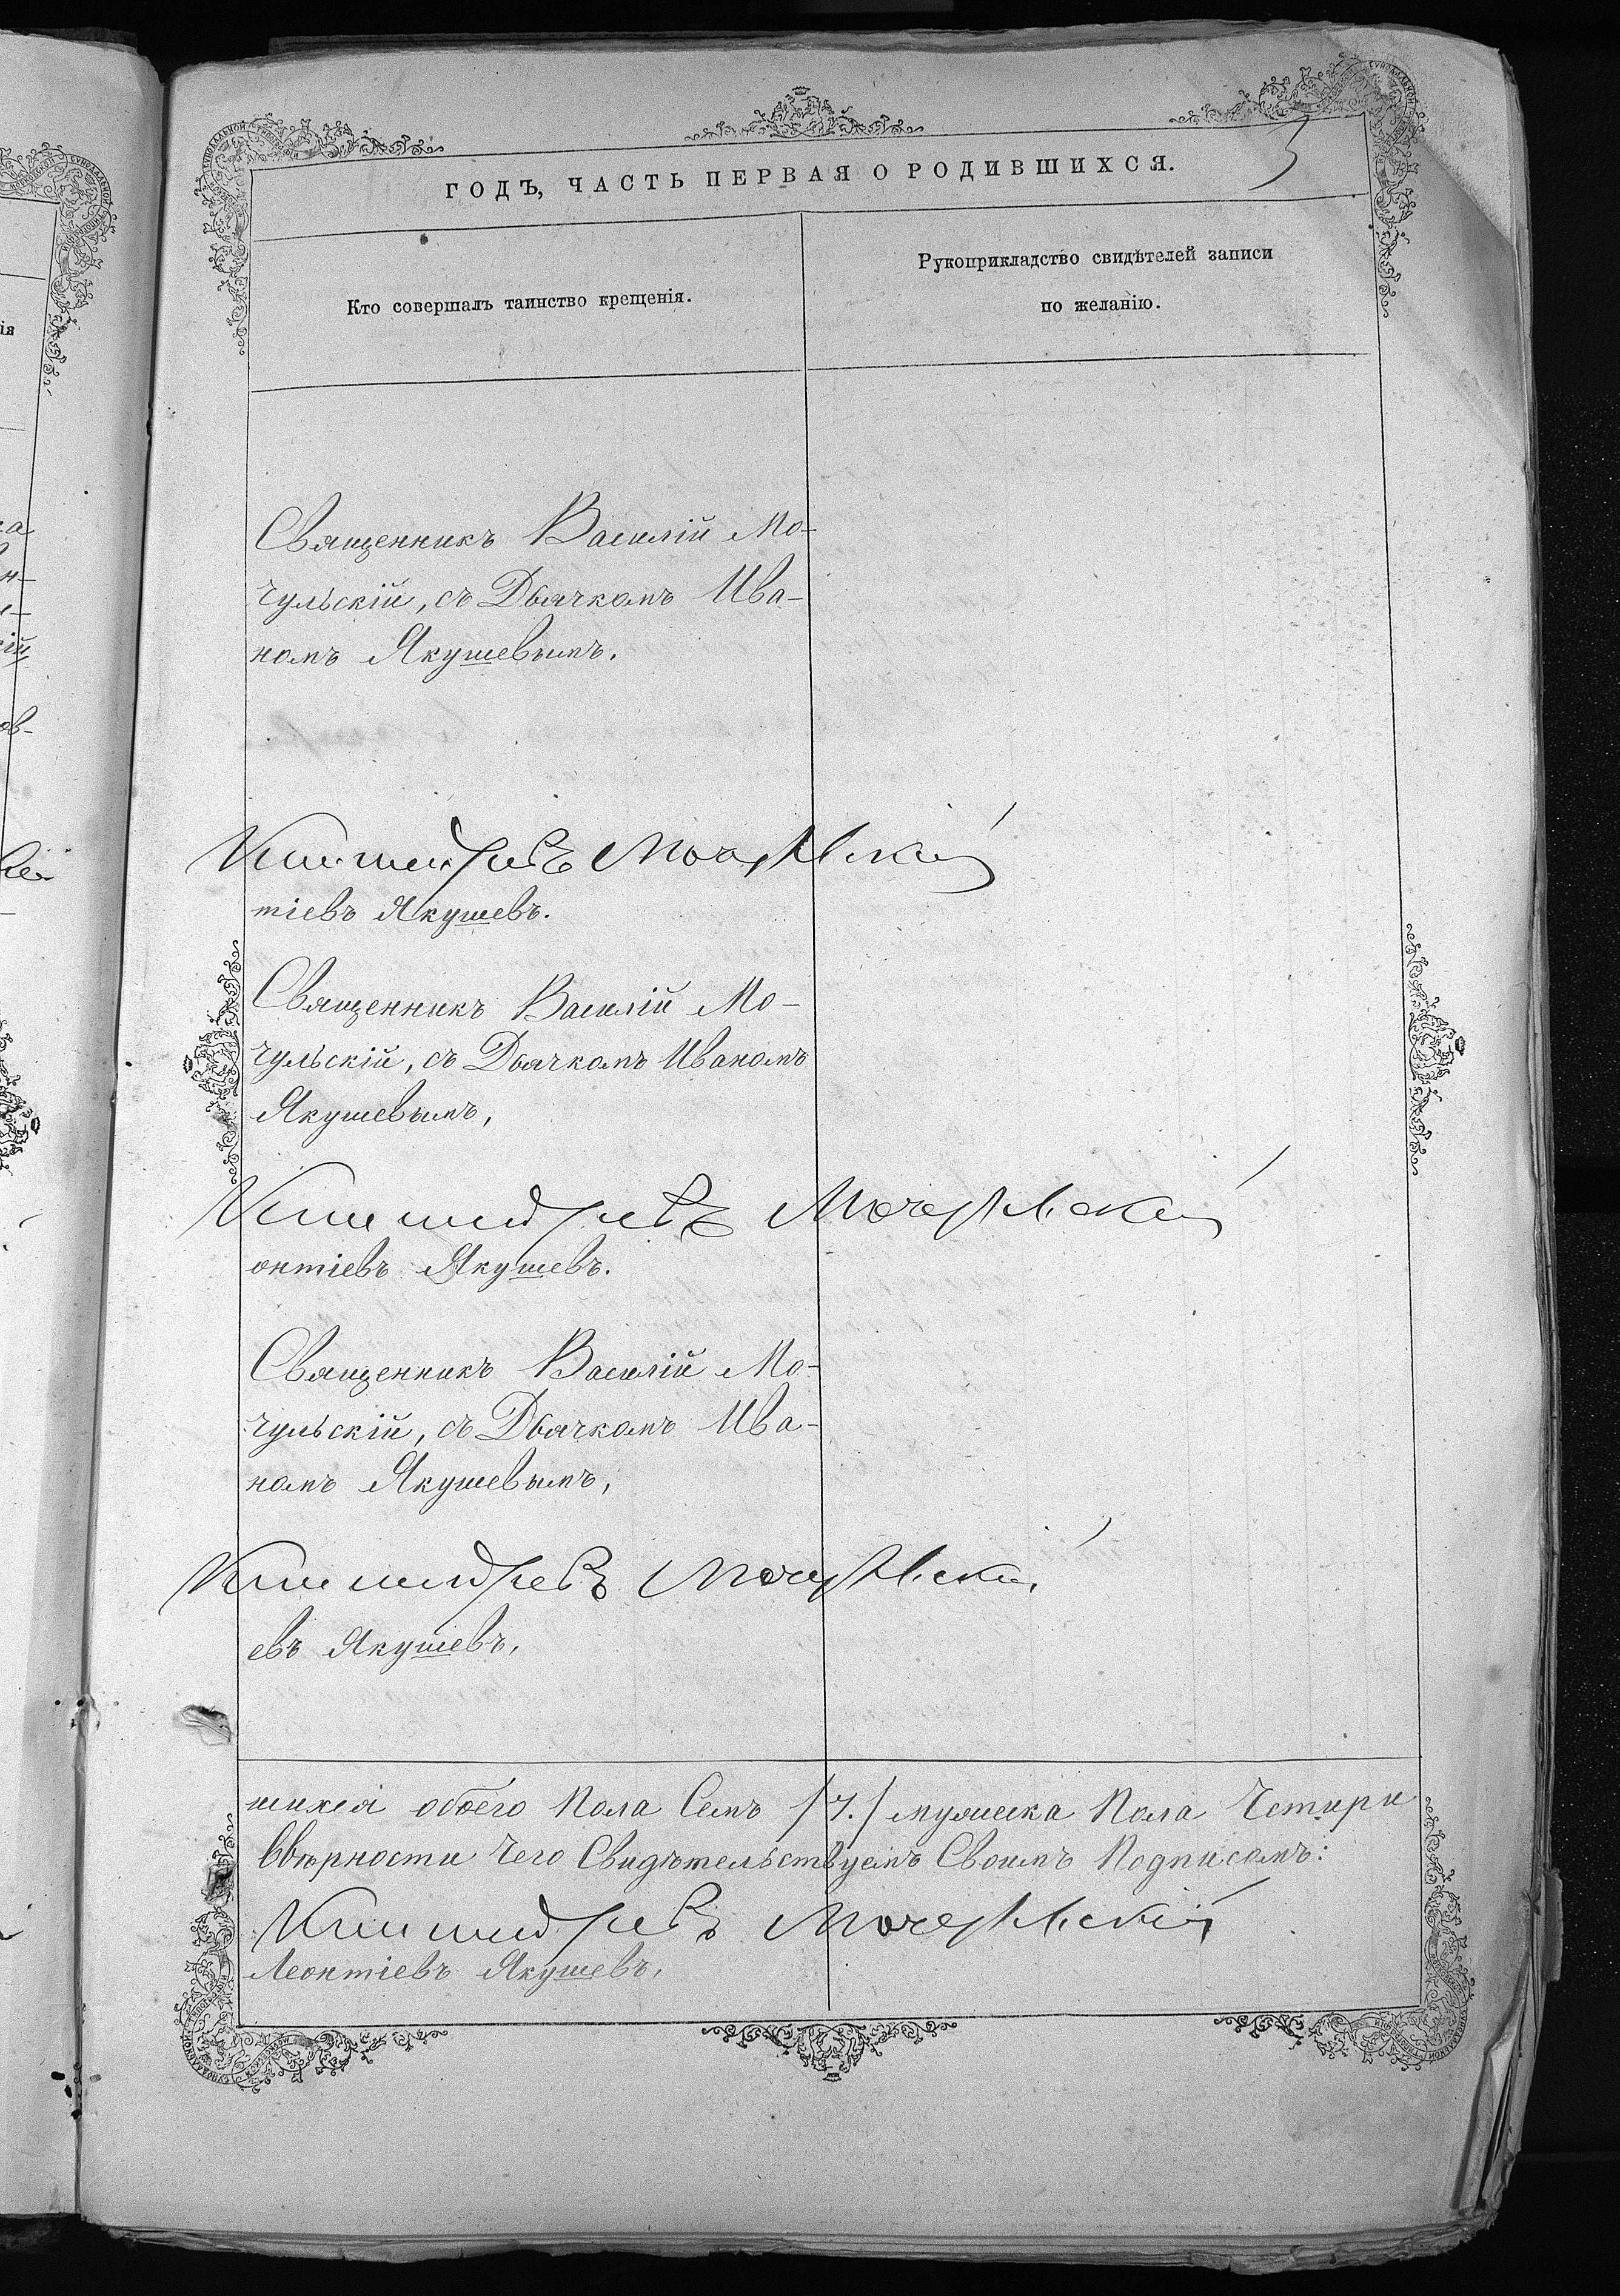 ГОДЪ, ЧАСТЬ ПЕРВАЯ О РОДИВШИХСЯ.
Кто совершалъ таинство крещенія.
Рукоприкладство свидѣтелей записи
по желанію.
Священникъ Василій Мо-
чульскій, съ Дьячкомъ Ива-
номъ Якушевымъ.
Мочульскій
тіевъ Якушевъ.
Священникъ Василій Мо-
чульскій, съ Дьячкомъ Иваномъ
Якушевымъ,
Мочульскій
онтіевъ Якушевъ.
Священникъ Василій Мо-
чульскій, съ Дьячкомъ Ива-
номъ Якушевымъ,
Мочульскій
евъ Якушевъ,
шихся обоего Пола Семъ /7./ мужеска Пола Четири
Ввѣрности чего Свидѣтельствуемъ Своимъ Подписомъ:
Мочульскій
Леонтіевъ Якушевъ,